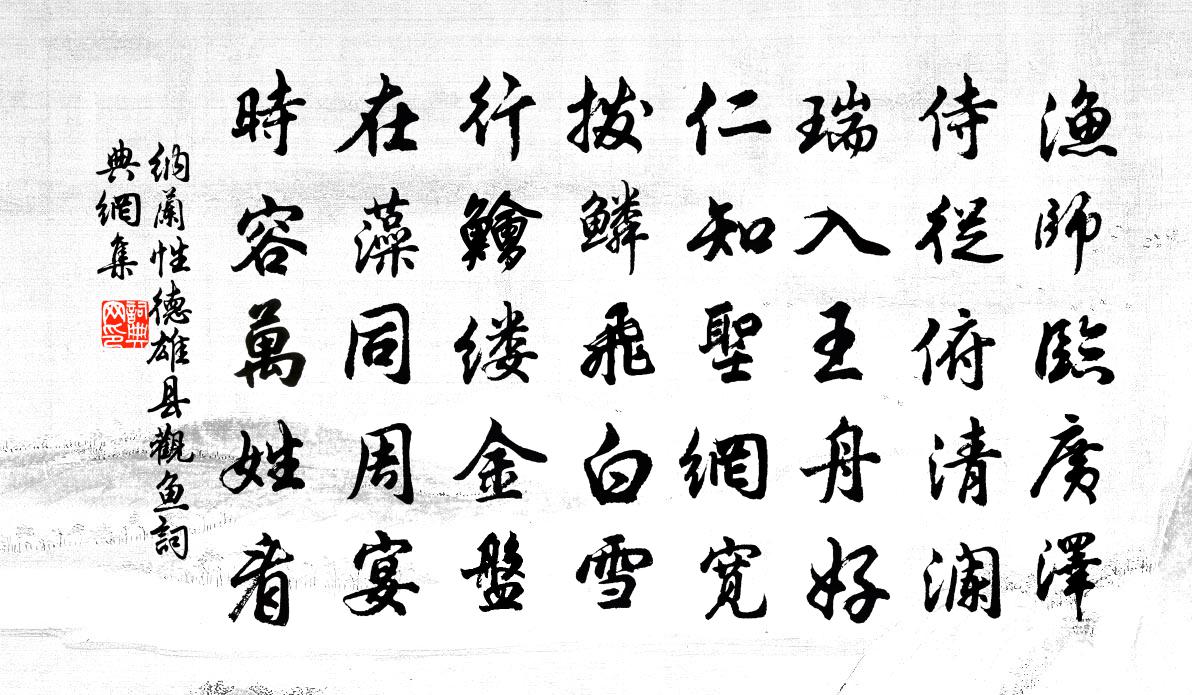 渔師臨廣澤
侍從俯清瀾
瑞入王舟好
仁知聖網宽
拨鱗飛白雪
行鱠缕金盤
在藻同周宴
時容萬姓看
纳蘭性德雄县觀鱼詞
典網集
詞典網印